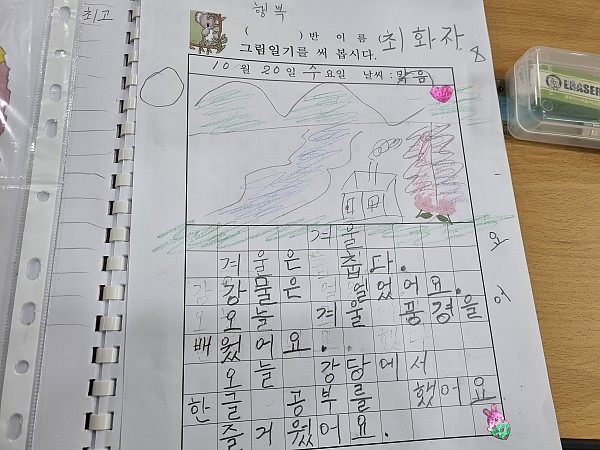 최고
행복
( )반 이름 (최화자.
그림일기를 써 봅시다.
10월 20일 수요일 날씨 : 맑음
겨울
겨울은 춥다.
강물은 얼었어요.
오늘 겨울 풍경을
배웠어요.
오늘 강당에서
한글 공부를 했어요
즐거웠어요.
ERASER